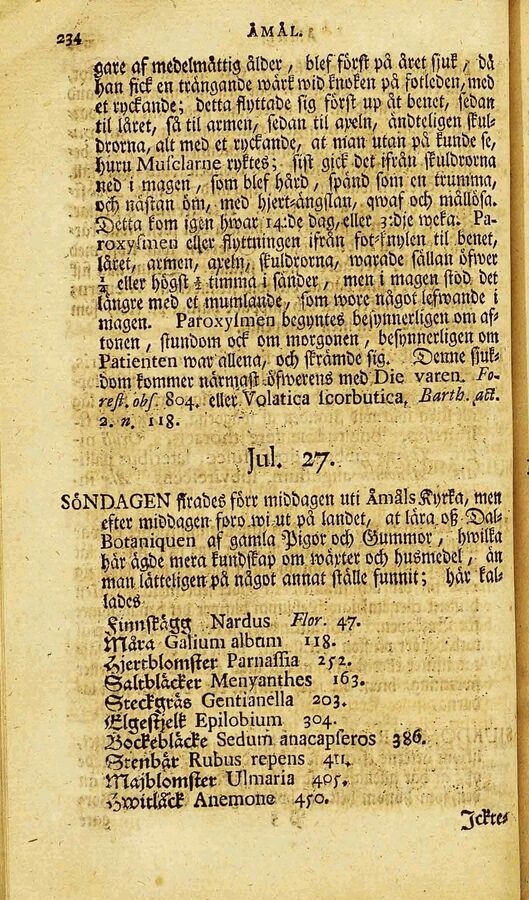 234 ÅMÅL.
gare af medelmåttig ålder, blef först på året sjuk, då
han fick en trängande wärk wid knoken på fotleden, med
et ryckande; detta flyttade sig först up åt benet, sedan
til låret, så til armen, sedan til axeln, ändteligen skul-
drorna, alt med et ryckande, at man utan på kunde se,
huru Musclarne ryktes; sist gick det ifrån skuldrorna
ned i magen, som blef hård, spänd som en trumma,
och nästan öm, med hjert-ängslan, qwaf och mållösa.
Detta kom igen hwar 14:de dag, eller 3:dje weka. Pa-
roxysmen eller flyttningen ifrån fot-knylen til benet,
låret, armen, axeln, skuldrorna, warade sällan öfwer
¼ eller högst ½ timma i sänder, men i magen stod det
längre med et mumlande, som wore något lefwande i
magen. Paroxysmen begyntes besynnerligen om af-
tonen, stundom ock om morgonen, besynnerligen om
Patienten war allena, och skrämde sig. Denne sjuk-
dom kommer närmast öfwerens med Die varen. Fo-
rest. obs. 804. eller Volatica scorbutica, Barth. act.
2. n. 118.
Jul. 27.
SöNDAGEN firades förr middagen uti Åmåls Kyrka, men
efter middagen foro wi ut på landet, at lära oß Dal-
Botaniquen af gamla Pigor och Gummor, hwilka
här ägde mera kundskap om wäxter och husmedel, än
man lätteligen på något annat ställe funnit; här kal-
lades
Finnskägg Nardus Flor. 47.
Måra Galium album 118.
Hjertblomster Parnassia 252.
Saltbläcker Menyanthes 163.
Steckgräs Gentianella 203.
Elgestjelk Epilobium 304.
Bockebläcke Sedum anacapseros 386.
Stenbär Rubus repens 411.
Majblomster Ulmaria 405.
Hwitläck Anemone 450.
Icktes